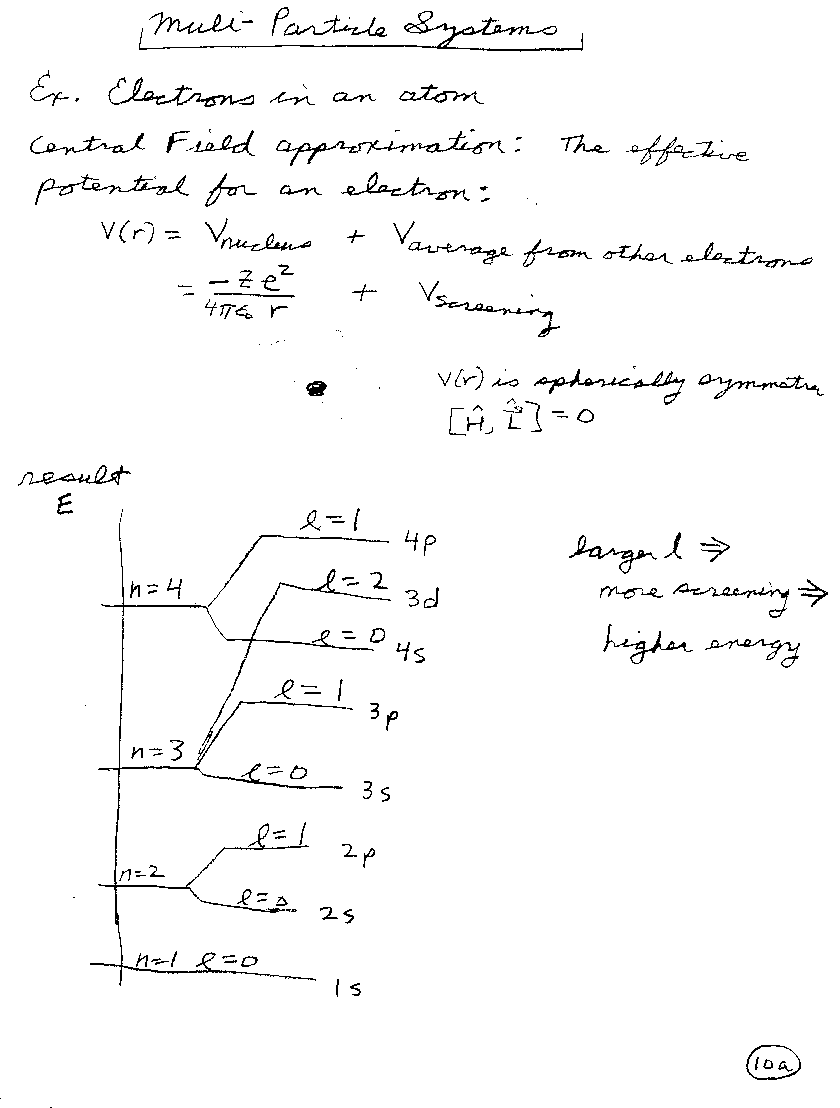 Multi-Particle Systems
Ex. Electrons in an atom
Central Field approximation: The effective
potential for an electron:
V(r) = Vnucleus + Vaverage from other electrons
= -Ze²/4πε₀ r + Vscreening
V(r) is spherically symmetric
[Ĥ, L̂] = 0
result
E
l=1 4p
n=4 l=2 3d
l=0 4s
l=1 3p
n=3
l=0 3s
l=1 2p
n=2
l=0 2s
n=1 l=0 1s
larger l ⇒
more screening ⇒
higher energy
10a